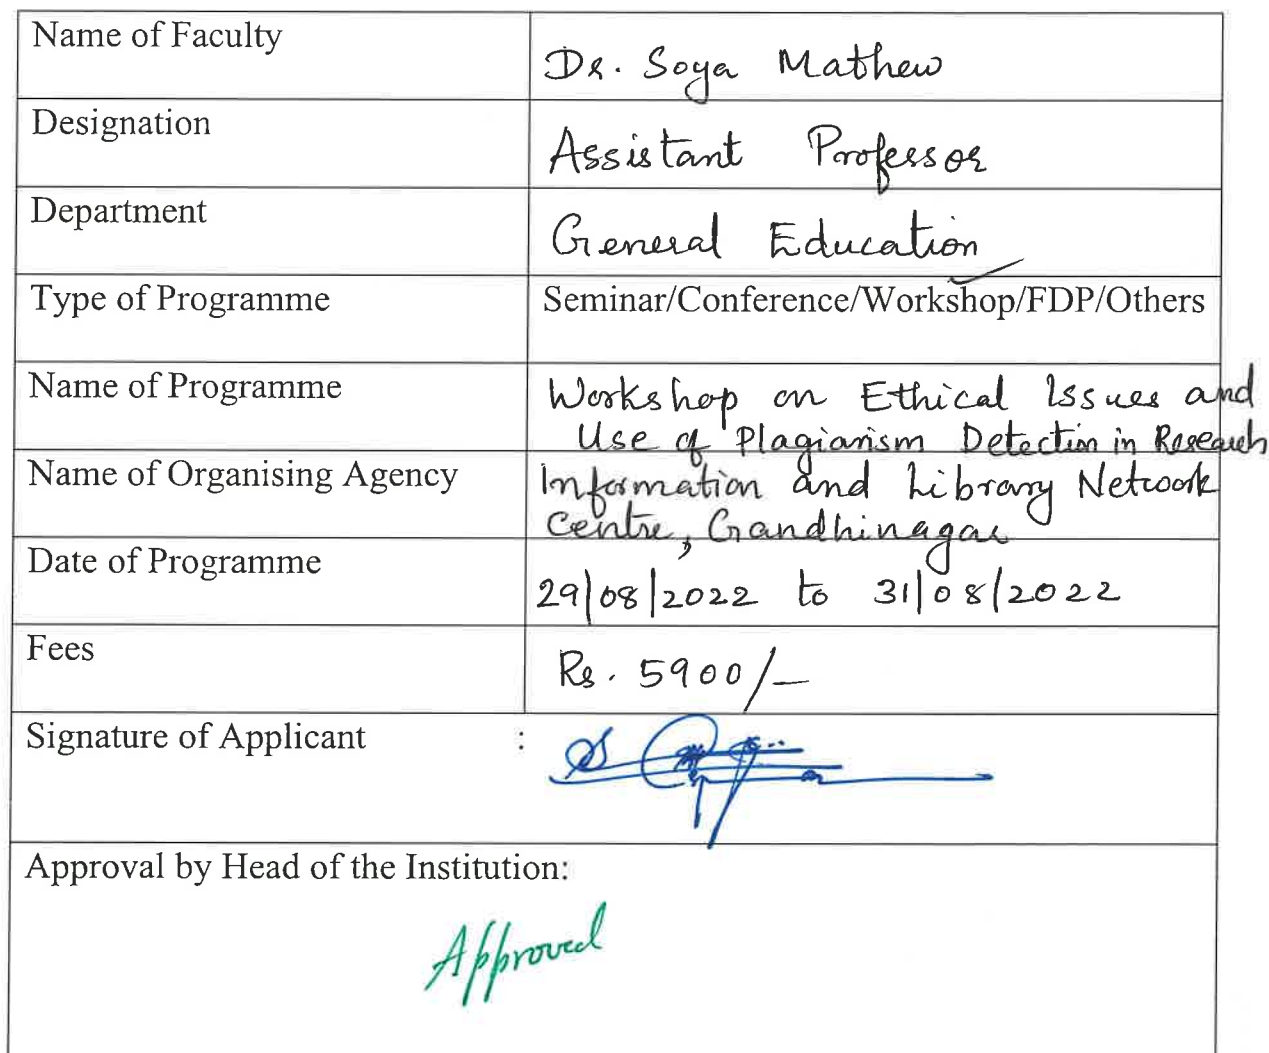 Name of Faculty
Dr. Soya Mathew
Designation
Assistant Professor
Department
General Education
Type of Programme
Seminar/Conference/Workshop/FDP/Others
Name of Programme
Workshop on Ethical Issues and
Use of Plagiarism Detection in Research
Name of Organising Agency
Information and Library Network
Centre, Gandhinagar
Date of Programme
29/08/2022 to 31/08/2022
Fees
Rs. 5900/-
Signature of Applicant :
Approval by Head of the Institution:
Approved